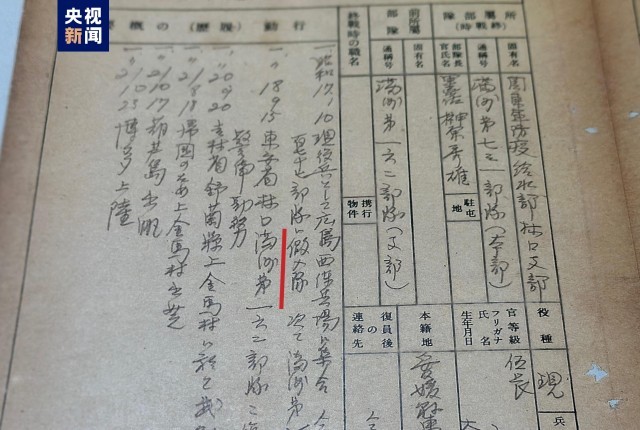 央视
新闻
所屬部隊
(終戰時)
固有名
関東軍防疫給水部 林口支部
通稱号
満洲第七三一部隊(本部)
部隊長
官氏名
榊原秀雄
駐屯
地
前所屬
部隊
固有名
通稱号
満洲第一六二部隊(支部)
携行
物件
終戰時の職名
行動(歷履)の概要
一、昭和17、10 現役兵として広島西練兵場に集合
部隊に仮入隊 次で満洲第
一、〃18、9、15 東安省林口満洲第一六二部隊
警備勤務
〃20、9、20 吉林省舒蘭縣上金馬村に於て
〃21、8、18 帰国のため上金馬村出発
〃21、10、17 葫芦島出帆
〃21、10、25 博多上陸
役種
現
兵
官等級
伍長
フリガナ
氏名
生年月日
本籍地
愛媛
復員後
の
連絡先